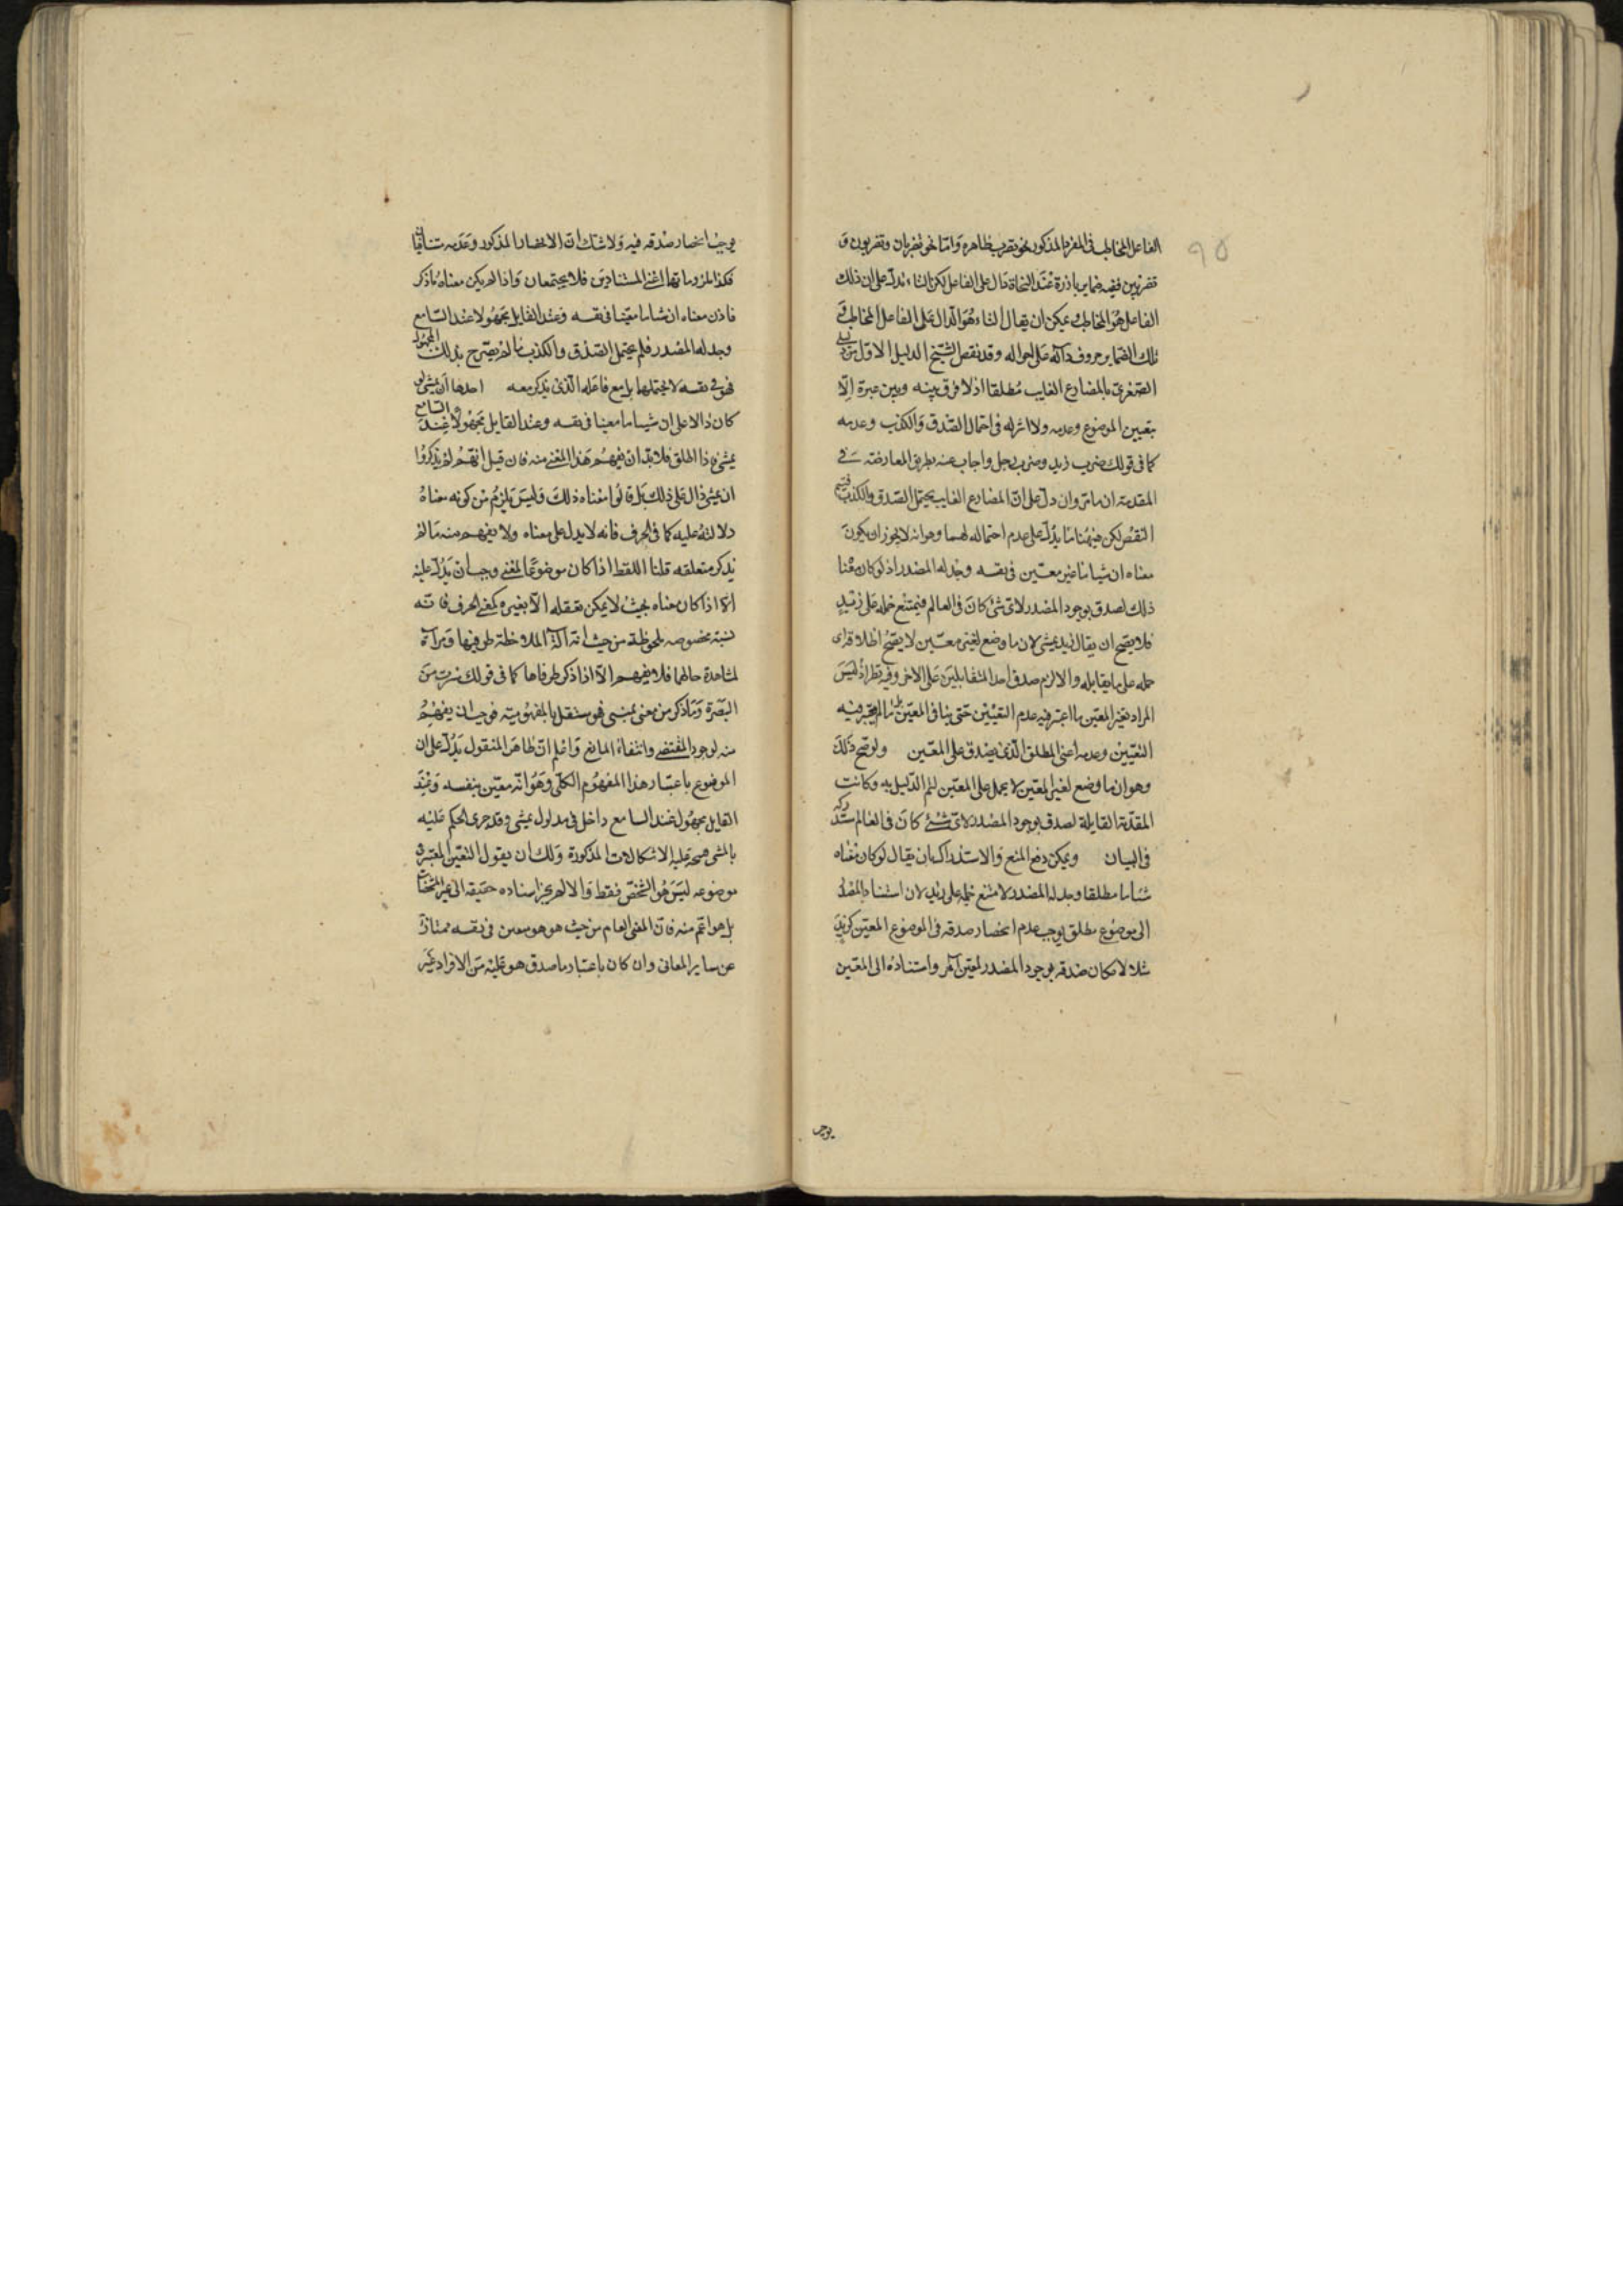 ٩٥
الفاعل المخاطب فى المفرد المذكور نحو تضرب ظاهرة واما نحو تضربان وتضربون و
تضربين ففيه ضماير بارزة عند النحاة دال على الفاعل لكن التاء تدل على ان ذلك
الفاعل هو المخاطب ويمكن ان يقال التاء هو الدال على الفاعل المخاطب و
تلك الضماير حروف دالة على احواله وقد نقض الشيخ الدليل الاول
الصغرى بالمضارع الغايب مطلقا اذ لا فرق بينه وبين غيره الا
بتعيين الموضوع وعدمه ولا اثر له فى احتمال الصدق والكذب وعدمه
كما فى قولك ضرب زيد وضرب رجل واجاب عنه بطريق المعارضة فى
المقدمة ان ما مر وان دل على ان المضارع الغايب يحتمل الصدق والكذب فيتم
النقض لكن فيهنا ما يدل على عدم احتماله لهما وهو انه لا يجوز ان يكون
معناه ان شيا ما غير معين فى نفسه وجد له المصدر اذ لو كان معنا
ذلك لصدق بوجود المصدر لاى شئ كان فى العالم فيمتنع حمله على زيد
فلا يصح ان يقال زيد يمشى لان ما وضع لغير معين لا يصح اطلاقه اى
حمله على ما يقابله والا لزم صدق احد المتقابلين على الاخر وفيه نظر اذ ليس
المراد بغير المعين ما اعتبر فيه عدم التعيين حتى ينافى المعين بل ما لم يعتبر فيه
التعيين وعدمه اعنى المطلق الذى يصدق على المعين ولو صح ذلك
وهو ان ما وضع لغير المعين لا يحمل على المعين لتم الدليل به وكانت
المقدمة القايلة لصدق بوجود المصدر لاى شئ كان فى العالم مستدركة
فى البيان ويمكن دفع المنع والاستدراك بان يقال لو كان معناه
شيئا ما مطلقا وجد له المصدر لامتنع حمله على زيد لان استناد المصدر
الى موضوع مطلق يوجب عدم انحصار صدقه فى الموضوع المعين كزيد
مثلا لامكان صدقه بوجود المصدر لمعين آخر واستناده الى المعين
يوجب
يوجب انحصار صدقه فيه ولا شك ان الانحصار المذكور وعدمه تنافيا
فكذا ملزوماتهما اعنى المستنادين فلا يجتمعان واذا لم يكن معناه ما ذكر
فاذن معناه ان شيا ما معينا فى نفسه وعند القايل مجهولا عند السامع
وجد له المصدر فلم يحتمل الصدق والكذب ما لم يصرح بذلك المجهول
فهو فى نفسه لا يحتملها بل مع فاعله الذى يذكر معه احدها ان يمشى لو
كان دالا على ان شيئا ما معينا فى نفسه وعند القايل مجهولا عند السامع
يمشى فاذا اطلق فلا بد ان يفهم هذا المعنى منه فان قيل انهم لم يذكروا
ان يمشى دال على ذلك بل قالوا معناه ذلك وليس يلزم من كونه معناه
دلالته عليه كما فى الحرف فانه لا يدل على معناه ولا يفهم منه ما لم
يذكر متعلقه قلنا اللفظ اذا كان موضوعا لمعنى وجب ان يدل عليه
الا اذا كان معناه بحيث لا يمكن تعقله الا بغيره كمعنى الحرف فانه
نسبة مخصوصة ملحوظة من حيث انه آلة لملاحظة طرفيها ومرآة
لمشاهدة حالهما فلا يفهم الا اذا ذكر طرفاها كما فى قولك سرت من
البصرة وما ذكر من معنى يمشى فهو مستقل بالمفهومية فوجب ان يفهم
منه لوجود المقتضى وانتفاء المانع واعلم ان ظاهر المنقول يدل على ان
الموضوع باعتبار هذا المفهوم الكلى وهو انه معين بنفسه وعند
القايل مجهول عند السامع داخل فى مدلول يمشى وقد جرى الحكم عليه
بالمشى فيتجه عليه الاشكالات المذكورة ولك ان يقول التعين المعتبر فى
موضوعه ليس هو الشخص فقط والا لم يجز اسناده حقيقة الى غير المشخصات
بل هو اعم منه فان المعنى العام من حيث هو هو معين فى نفسه ممتاز
عن ساير المعانى وان كان باعتبار ما صدق هو عليه من الافراد غير